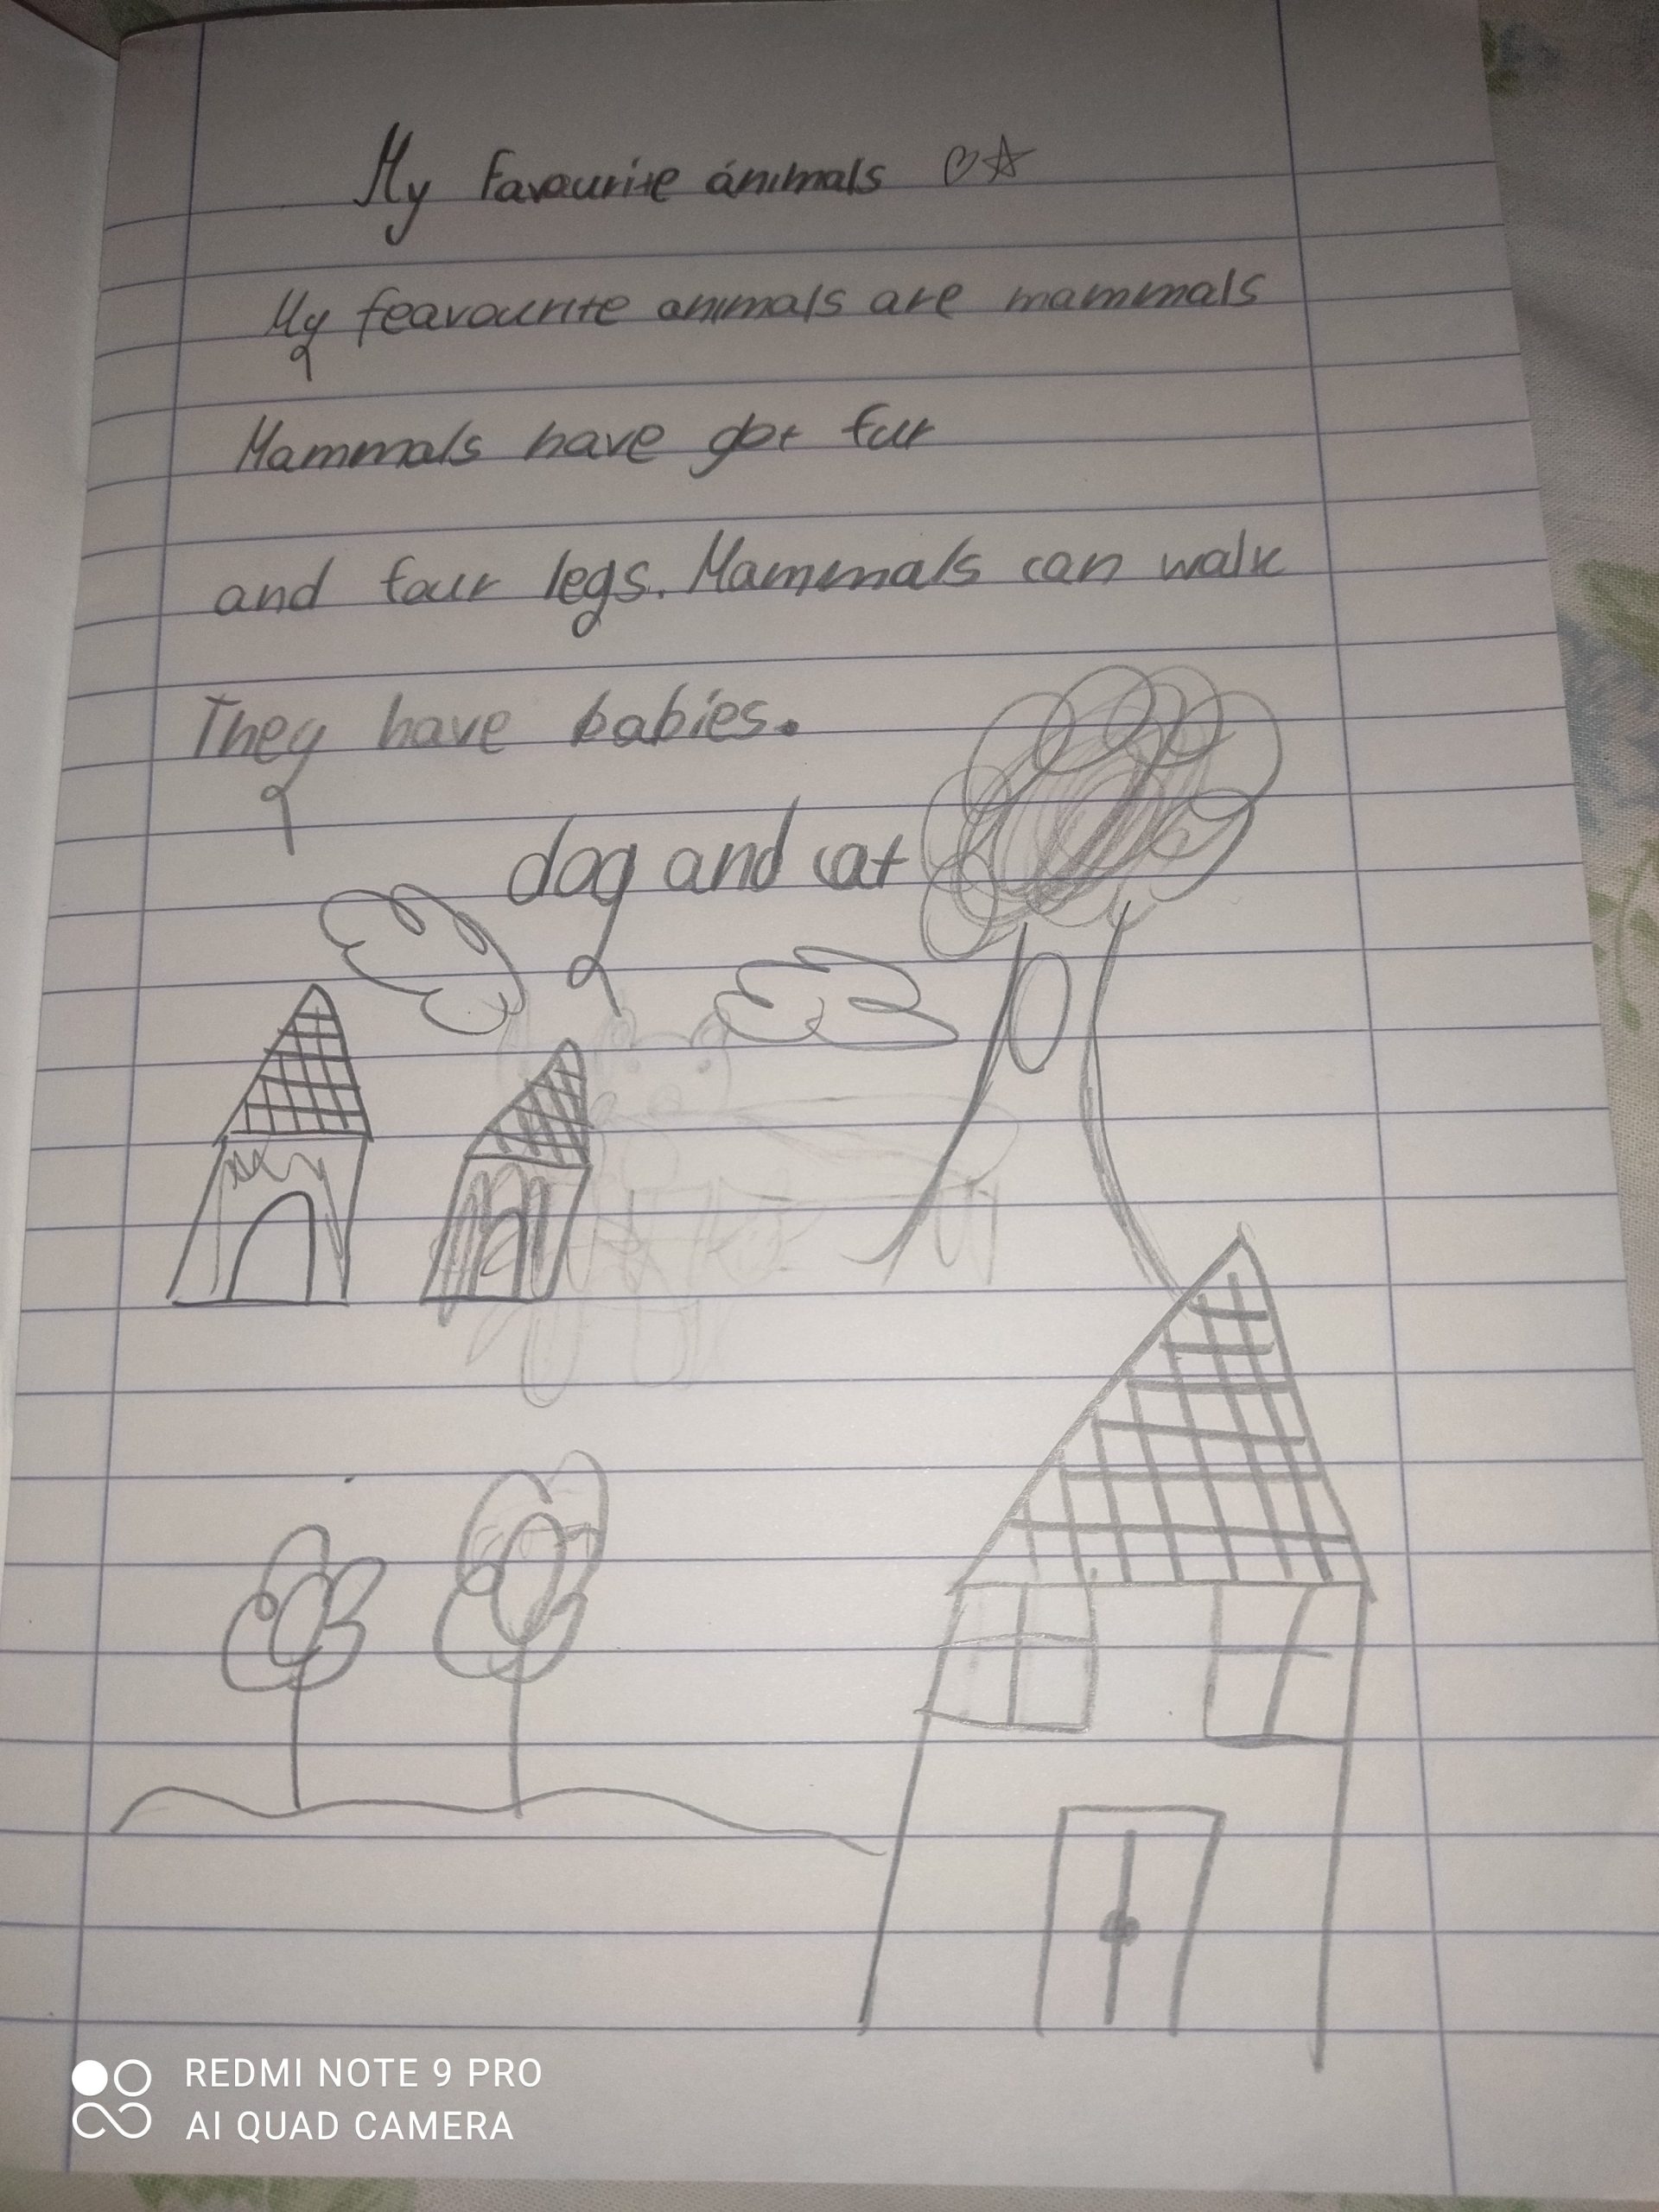 My Favourite ánimals ♡☆
My feavourite animals are mammals
Mammals have got fur
and four legs. Mammals can walk
They have babies.
dog and cat
REDMI NOTE 9 PRO
AI QUAD CAMERA